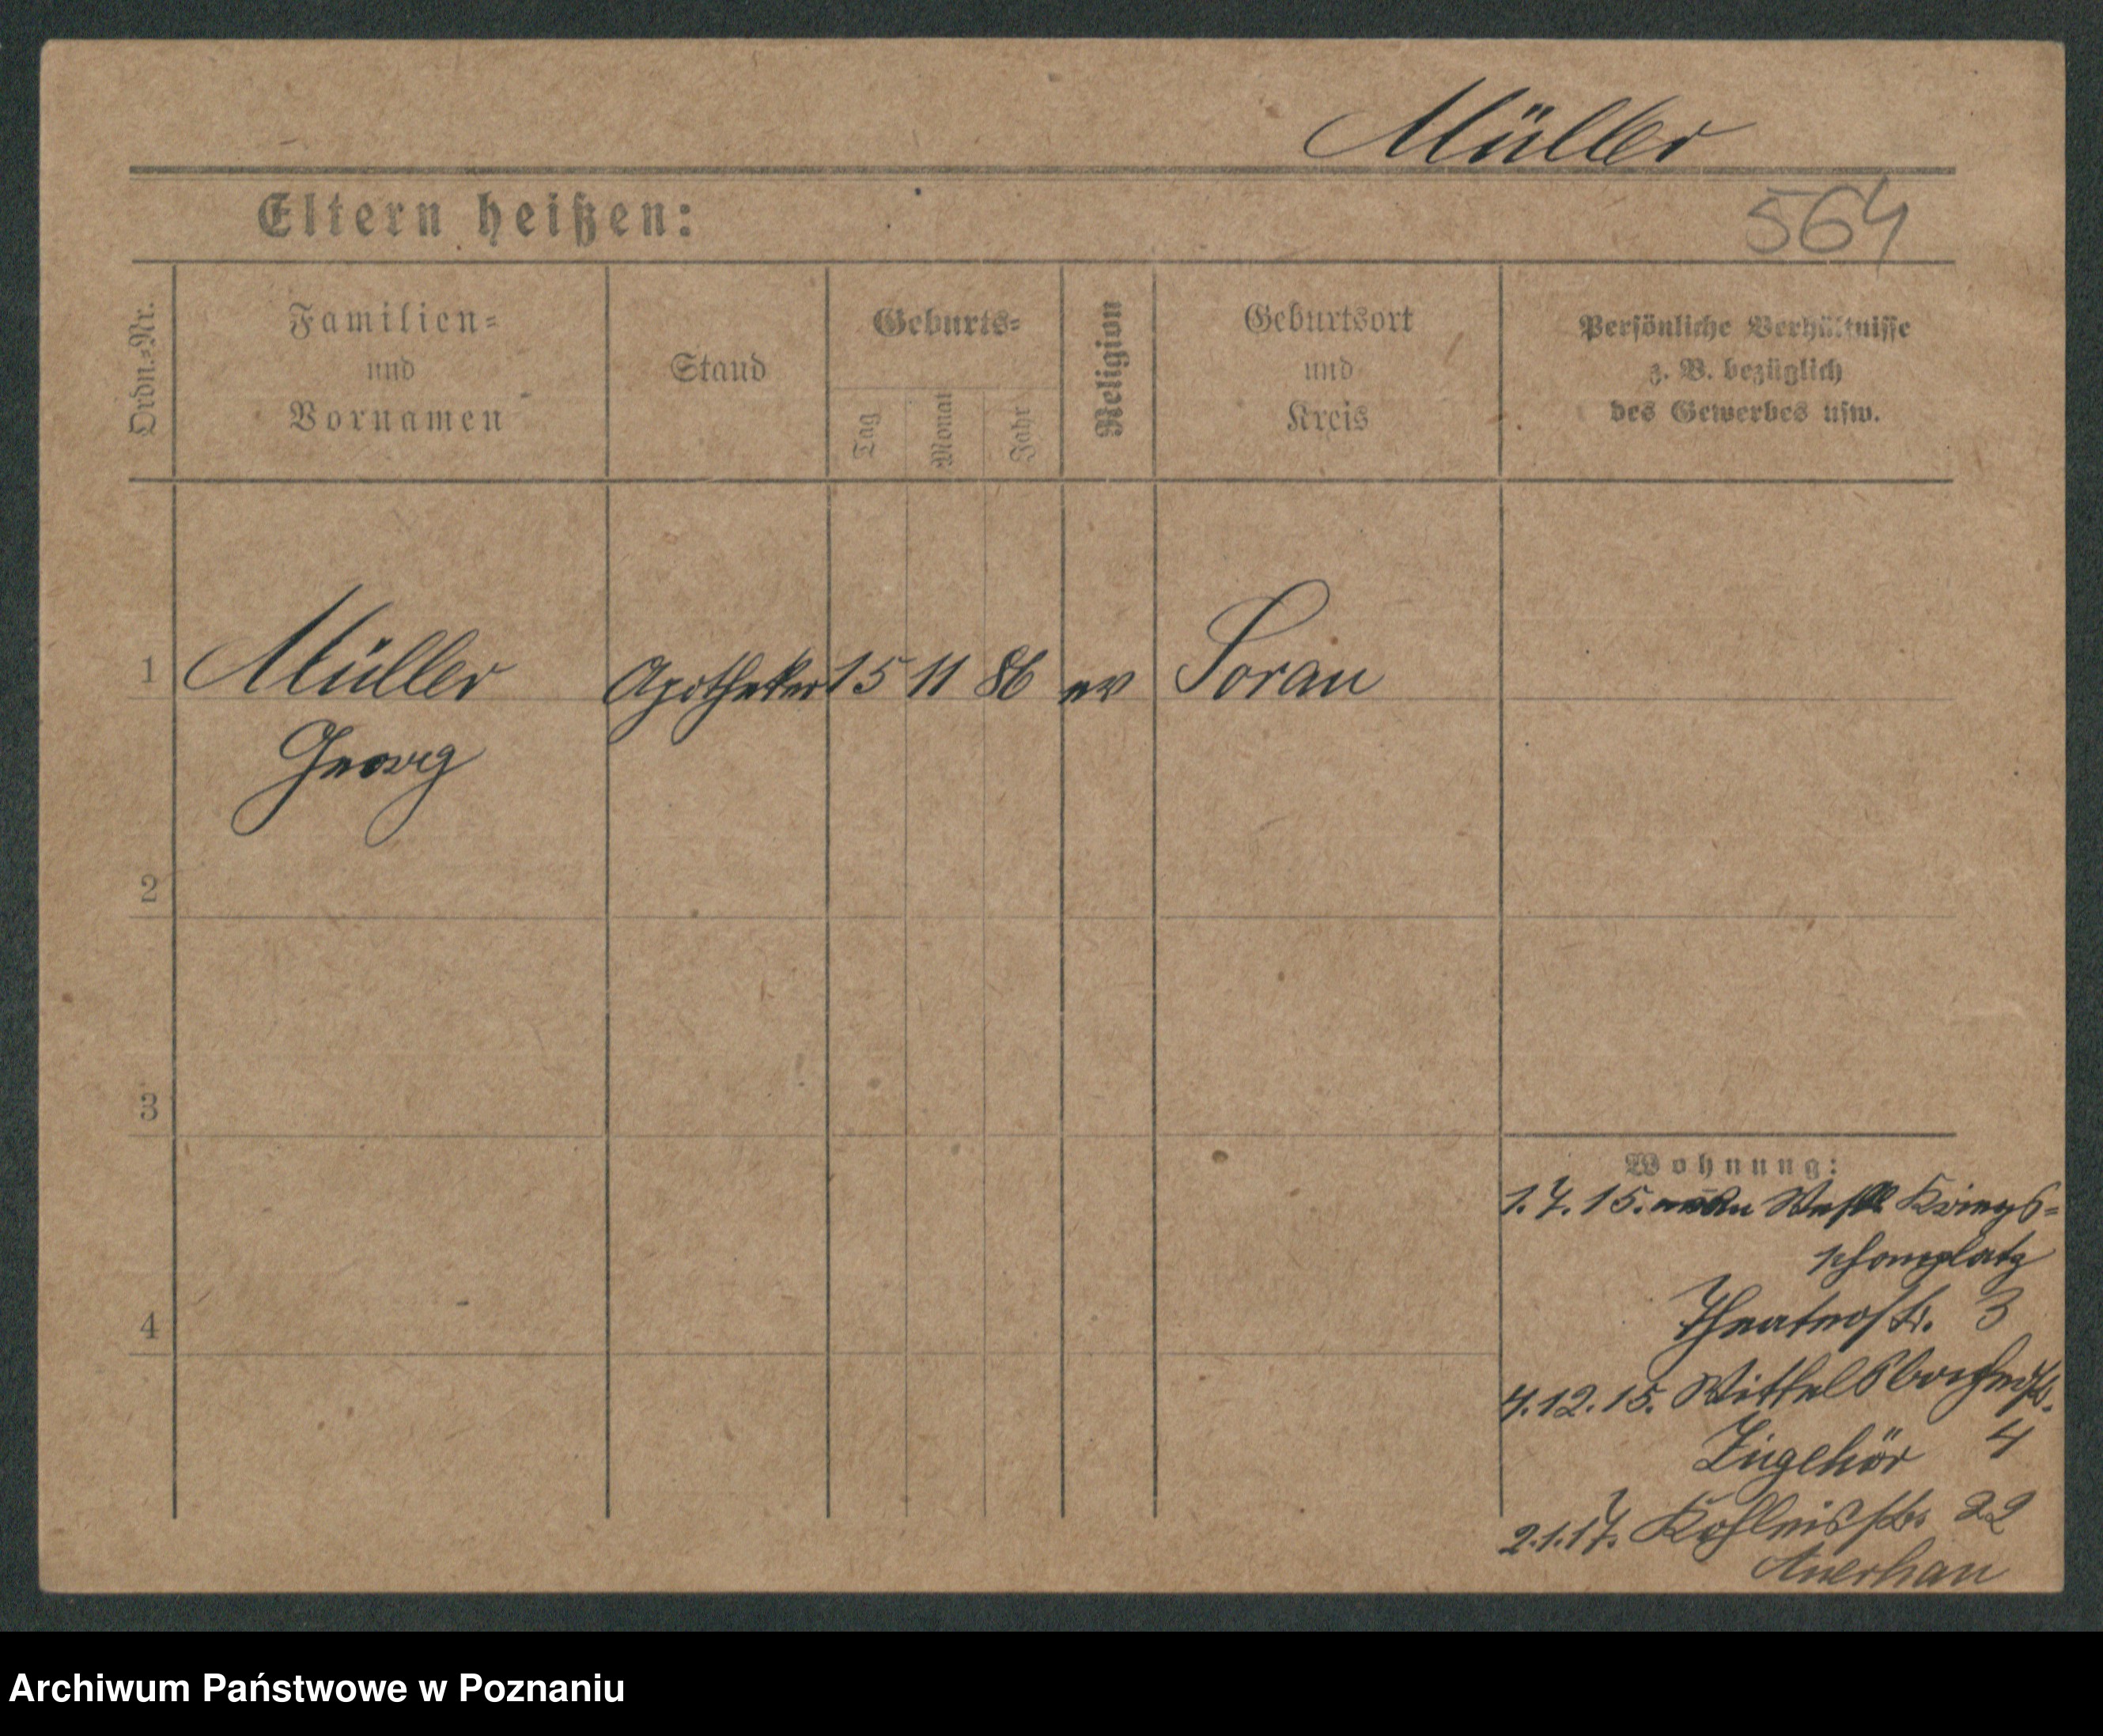 Müller
564
Eltern heißen:
Ordn.-Nr.
Familien-
und
Vornamen
Stand
Geburts-
Tag
Monat
Jahr
Religion
Geburtsort
und
Kreis
Persönliche Verhältnisse
z. B. bezüglich
des Gewerbes usw.
1 Müller Apotheker 15 11 86 ev Sorau
Georg
2
3
4
Wohnung:
1.7.15. Westl. Kriegs-
schauplatz
Theaterstr. 3
4.12.15. Wittelsbacherstr.
Zugehör 4
2.1.17. Kohleisstr. 22
Auerhan
Archiwum Państwowe w Poznaniu